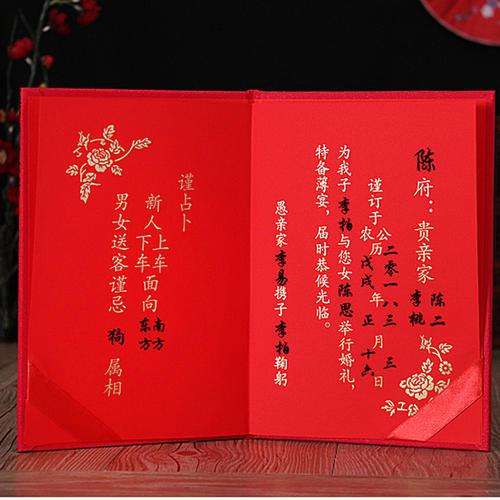 陈府：：贵亲家 陈二 李桃
谨订于 公农历 二零一八 戊戌 年 三 正 月 三 十六 日
为我子李柏与您女陈思举行婚礼，
特备薄宴，届时恭候光临。
愚亲家李易携子李柏鞠躬
谨占卜
新人 上车 下车 面向 南方 东方
男女送客谨忌 狗 属相